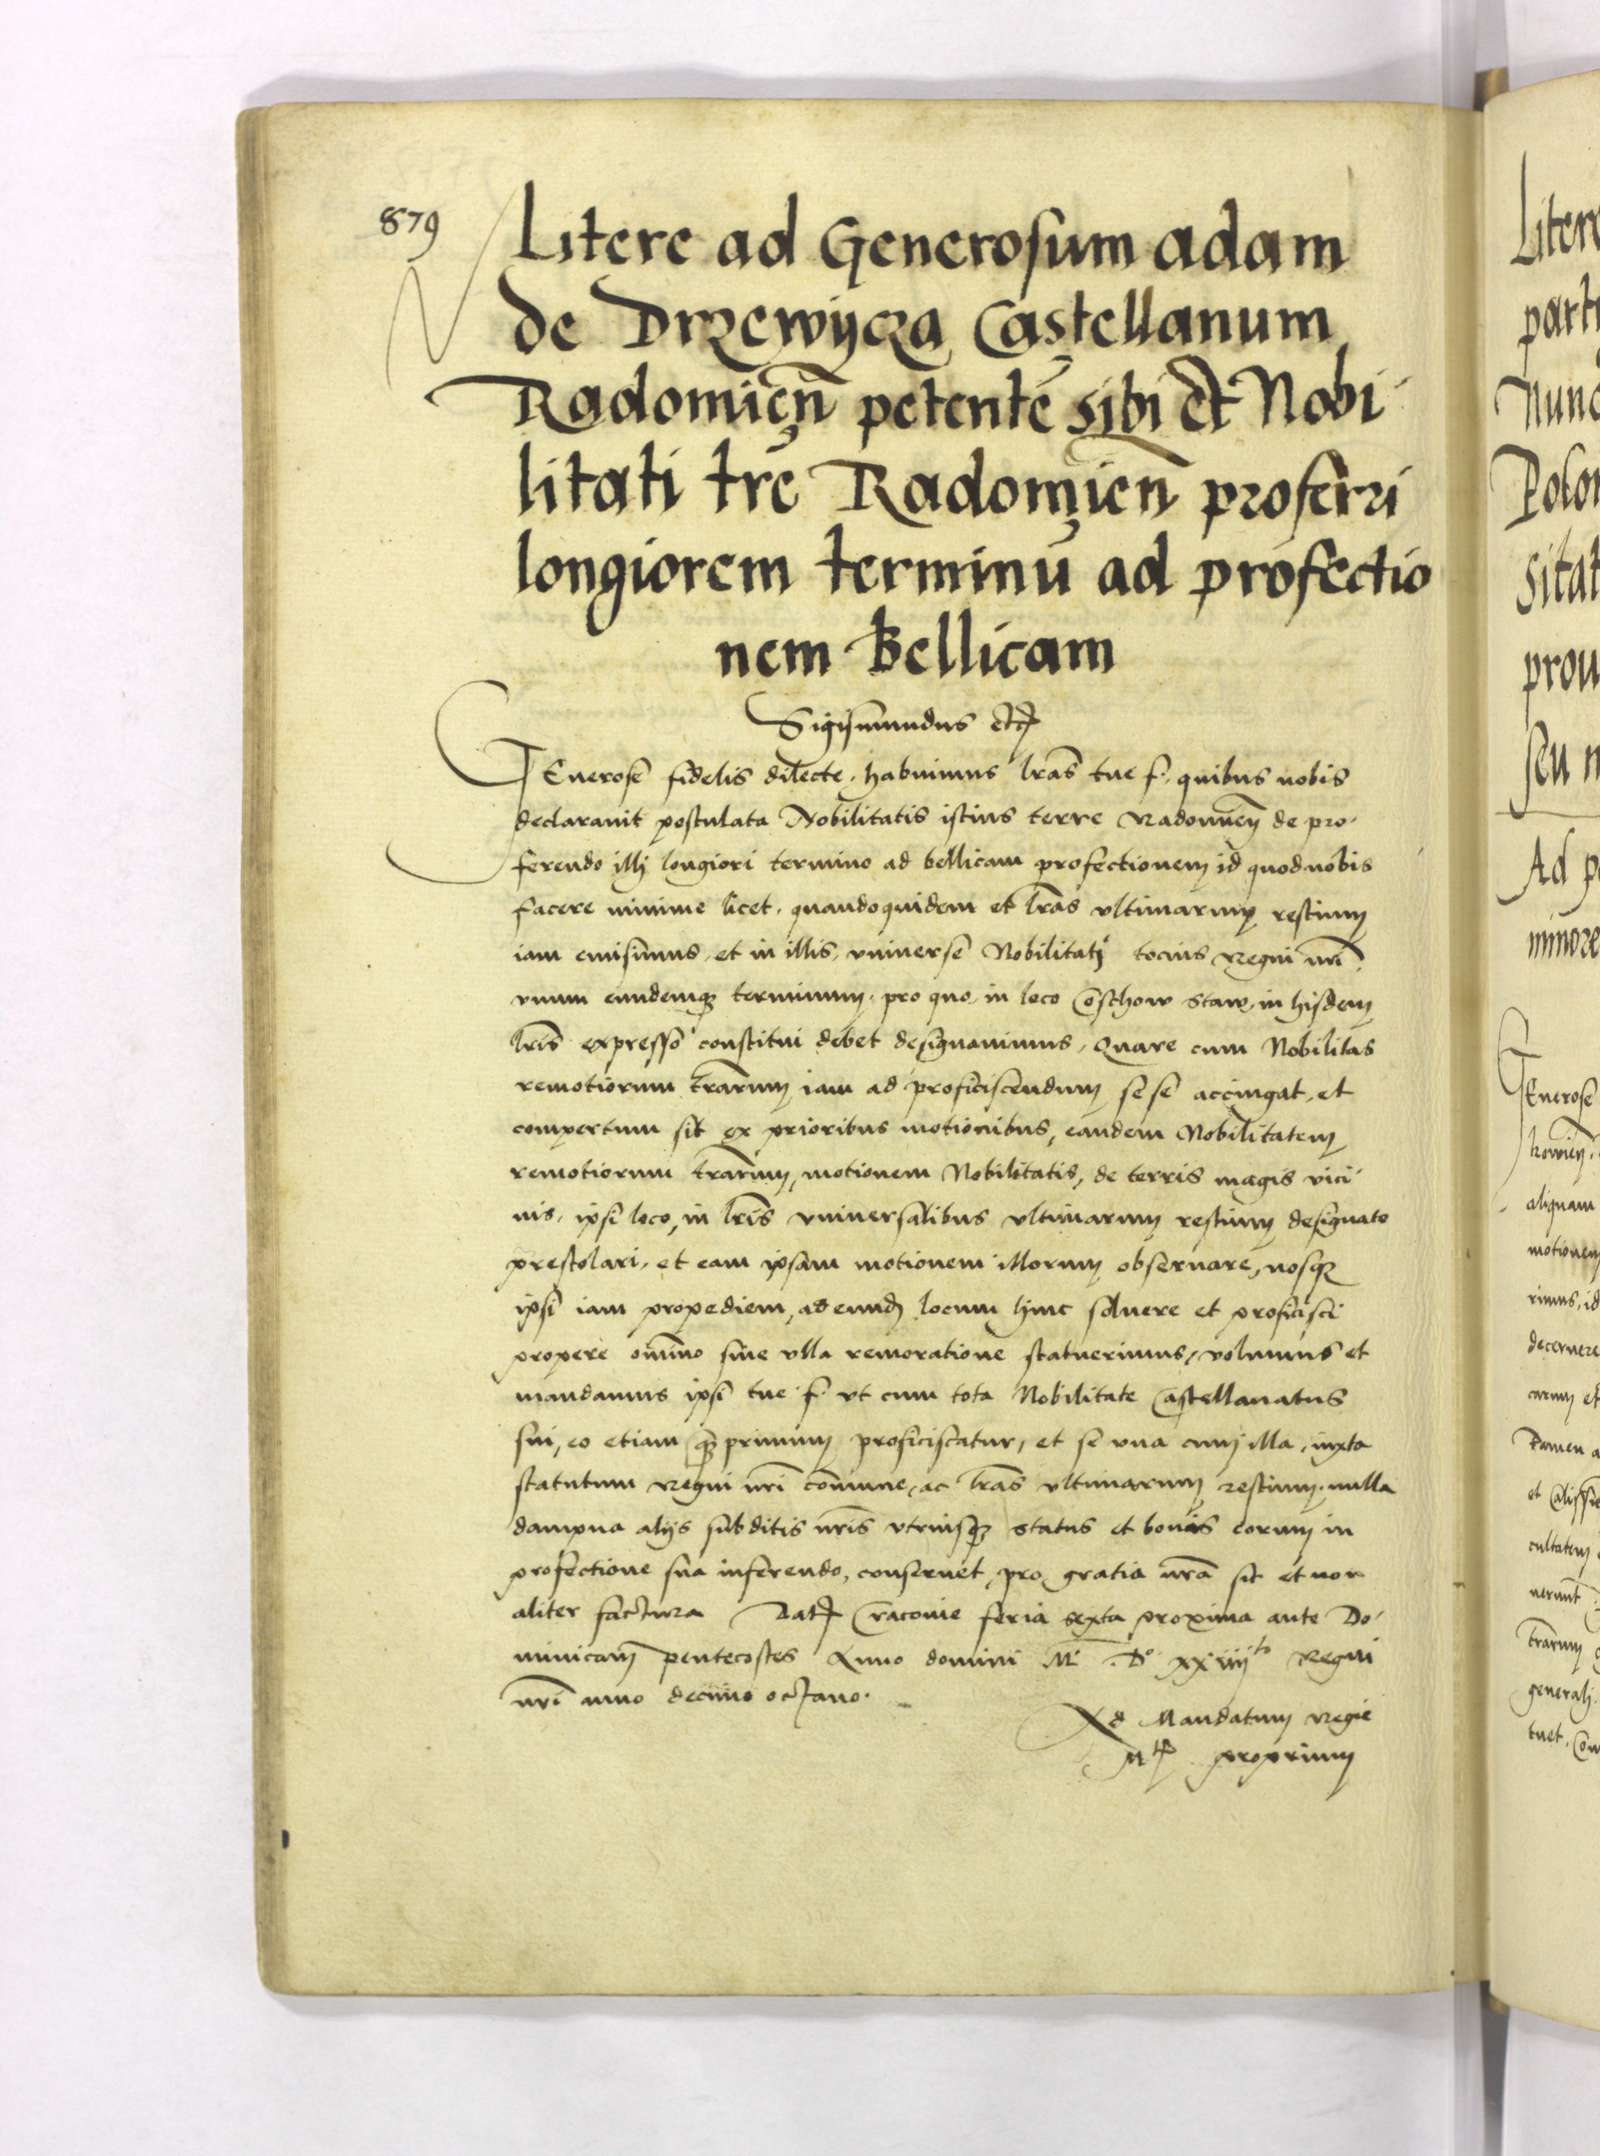 879
Litere ad Generosum adam
de Drzewycza Castellanum
Radomien̄ petentē sibi et Nobi
litati tre̅ Radomien̄ proferri
longiorem terminū ad profectio
nem Bellicam
Sigismundus etc̄
GEnerose fidelis dilecte, habuimus lr̄as tue f. quibus nobis
declarauit postulata Nobilitatis istius terre Radomien̄ de pro
ferendo illi longiori termino ad bellicam profectionem id quod nobis
facere minime licet, quandoquidem et lr̄as vltimarum restium
iam emisimus, et in illis, vniverse Nobilitati tocius Regni nr̄i
vnum eundemq3 terminum, pro quo, in loco Gschow staw, in hisdem
lr̄is expresso constitui debet designauimus, Quare cum Nobilitas
remotiorum tr̄arum iam ad proficiscendum sese accingat, et
compertum sit ex prioribus motionibus, eandem Nobilitatem
remotiorum tr̄arum, motionem Nobilitatis, de terris magis vici
nis, ipsi loco, in lr̄is vniversalibus vltimarum restium designato
prestolari, et eam ipsam motionem illorum obseruare, nosq3
ipsi iam propediem, ad eund̄ locum hinc soluere et proficisci
propere om̄ino sine vlla remoratione statuerimus, volumus et
mandamus ipsi tue f. vt cum tota Nobilitate Castellanatus
sui, eo etiam q̄ primum proficiscatur, et se vna cum illa, iuxta
statutum Regni nr̄i com̄une, ac lr̄as vltimarum restium, nulla
dampna alijs subditis nr̄is vtriusq3 status et bonis eorum in
profectione sua inferendo, conseruet, pro gratia nr̄a sit et non
aliter factura Dat̄ Cracouie feria sexta proxima ante Do
minicam pentecostes Anno domini Mo Do xxiiiito Regni
nr̄i anno decimo octauo.
Ad Mandatum Regie
Mtis proprium